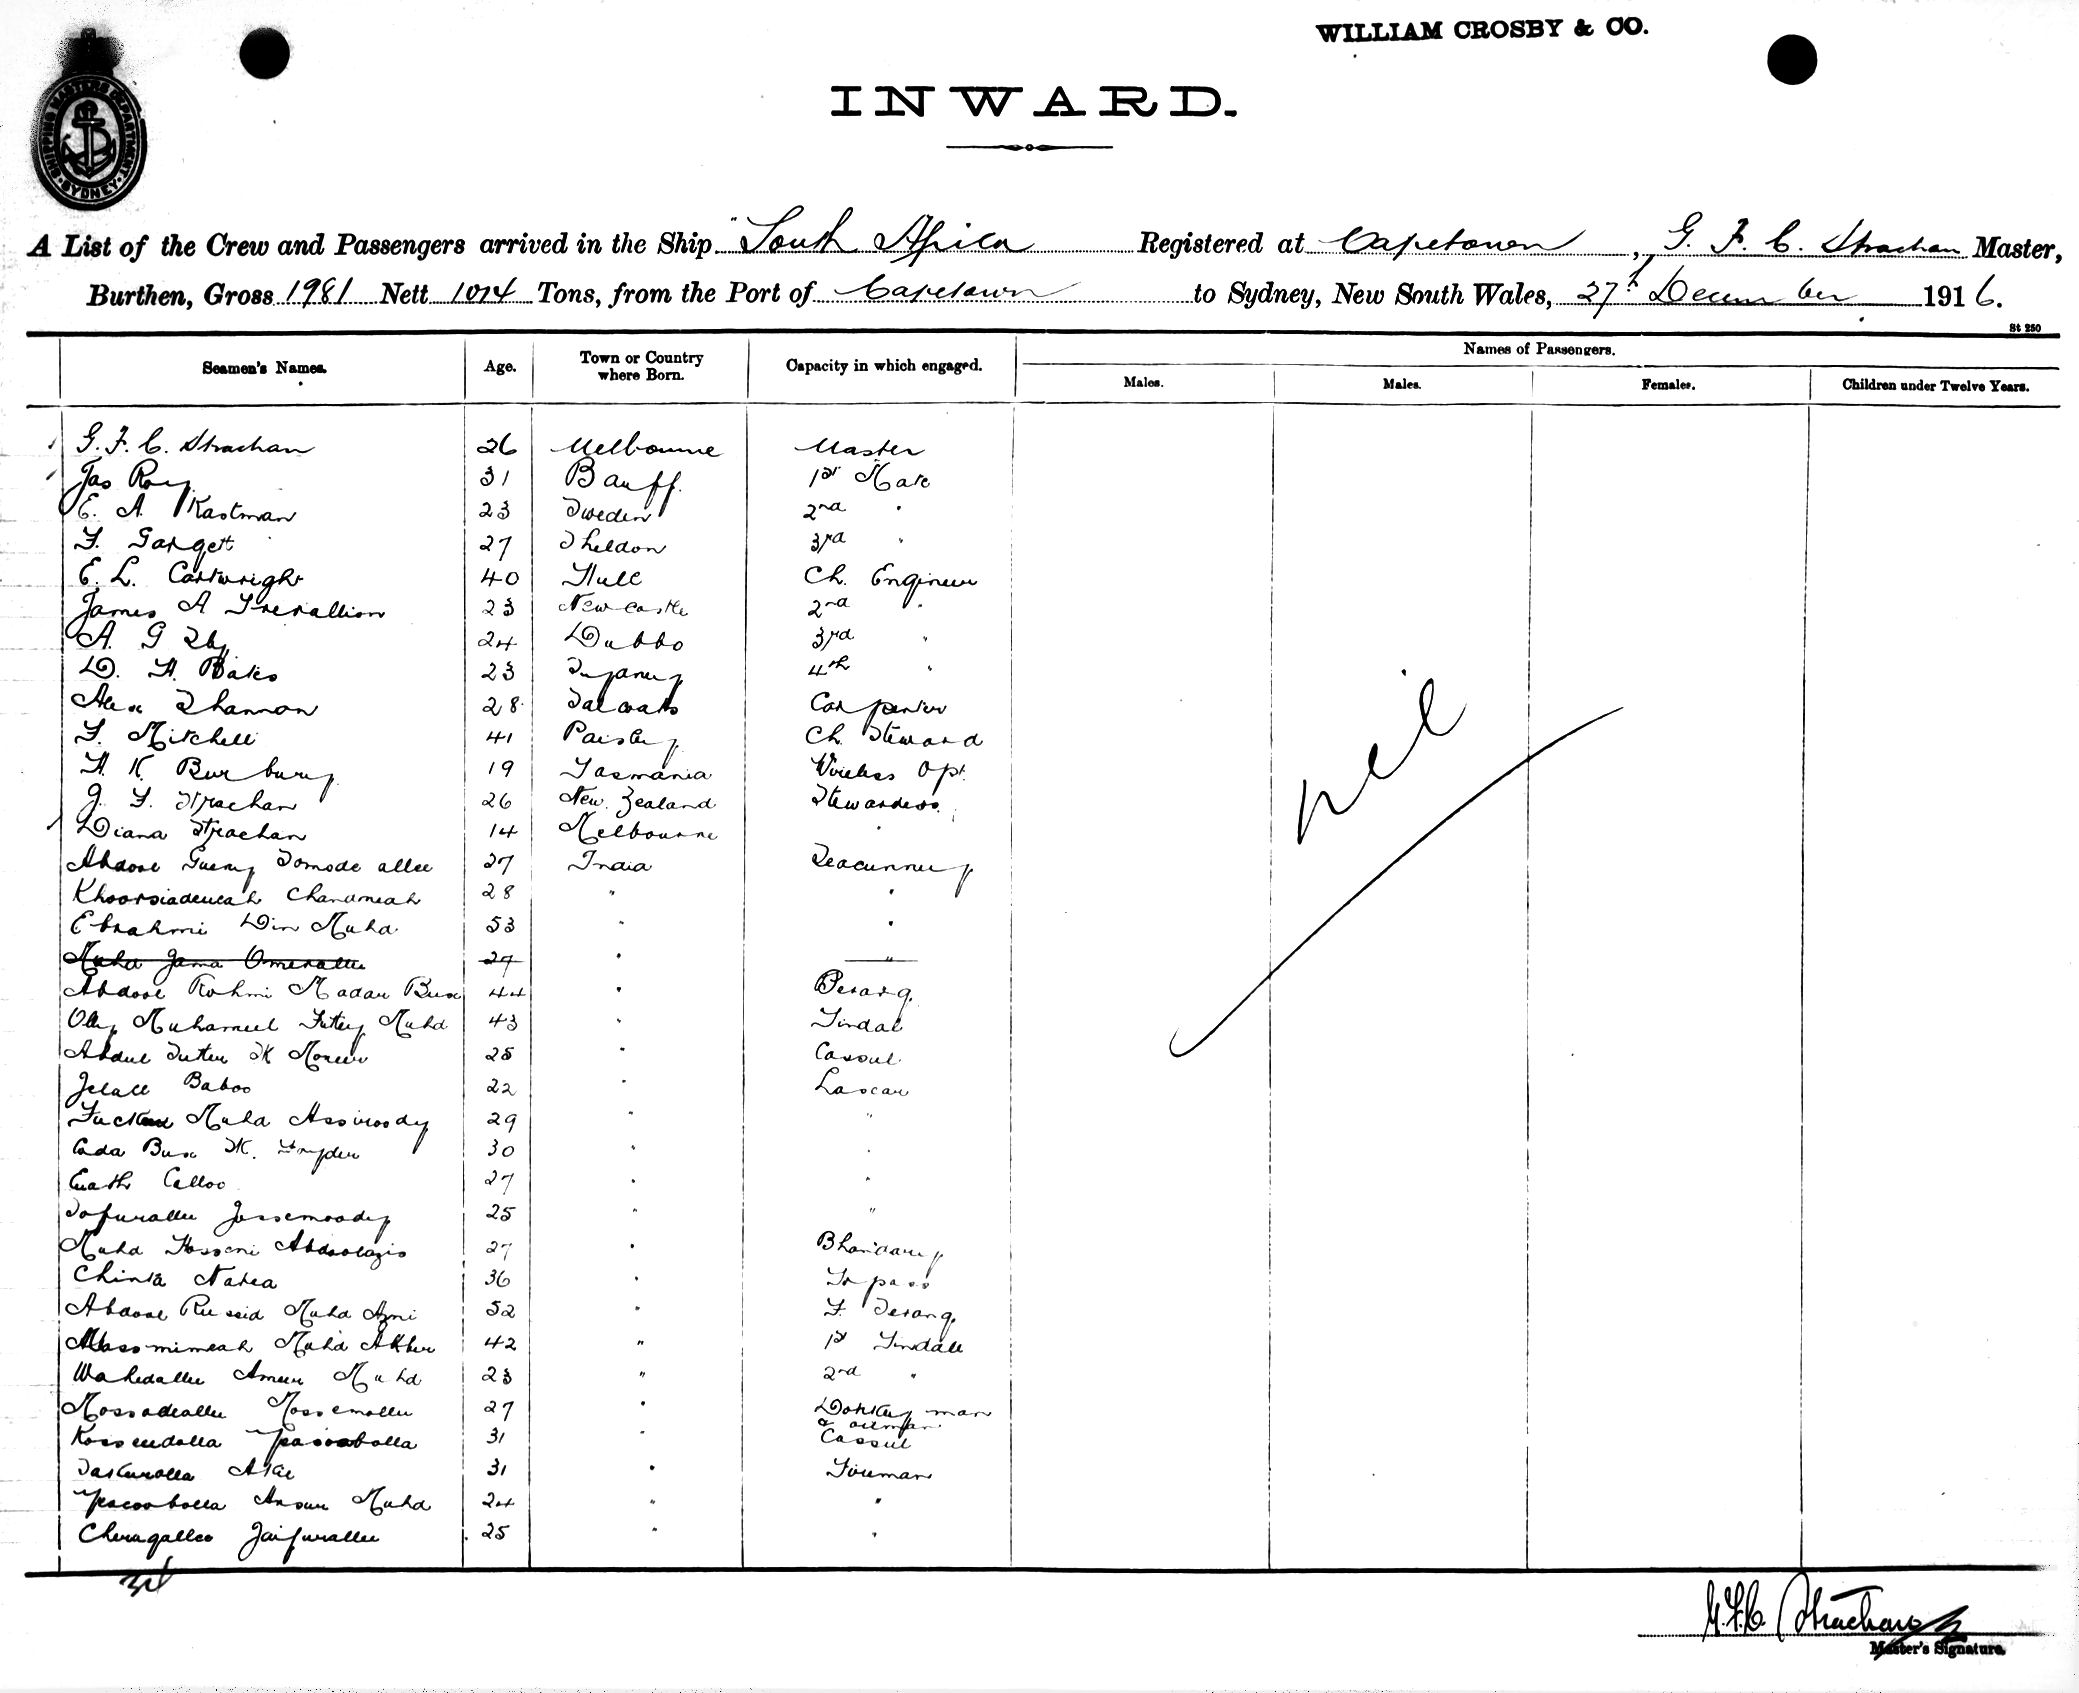 WILLIAM CROSBY & CO.
SHIPPING MASTERS DEPARTMENT
SYDNEY
INWARD.
A List of the Crew and Passengers arrived in the Ship "South Africa Registered at Capetown, G. F. C. Strachan Master,
Burthen, Gross 1981 Nett 1014 Tons, from the Port of Capetown to Sydney, New South Wales, 27th December 1916.
St 250
Seamen's Names. Age. Town or Country where Born. Capacity in which engaged. Names of Passengers.
Males. Males. Females. Children under Twelve Years.
G. F. C. Strachan 26 Melbourne Master
Jas Roy 31 Banff. 1st Mate
E. A. Kastman 23 Sweden 2nd "
F. Gargett 27 Sheldon 3rd "
E. L. Cartwright 40 Hull Ch. Engineer
James A Trevallion 23 Newcastle 2nd "
A. G 24 Dubbo 3rd "
D. H. Bates 23 4th "
Alex Shannon 28 Carpenter
F. Mitchell 41 Paisley Ch. Steward
H. K. Burbury 19 Tasmania Wireless Opt.
J. F. Strachan 26 New Zealand Stewardess
Diana Strachan 14 Melbourne "
Abdool 27 India Seacunney
Khoorsiadmeah Chandmeah 28 " "
Ebrahmi Din Muhd 53 " "
Muhd Jama Omerallee 27 " "
Abdool Rohmi Madar Bux 44 " Serang.
Olly Muhameed Futtey Muhd 43 " Tindal
Abdul 25 " Cassul
Jelall Baboo 22 " Lascar
Muhd Assiroody 29 " "
Bux SK. 30 " "
27 " "
Jossemoody 25 " "
Muhd Hosseni Abdoolazis 27 " Bhandary
Chinta Narsa 36 " Topass
Abdool Russid Muhd Azmi 52 " F. Serang.
Massmimeah Muhd Akber 42 " 1st Tindall
Wahedallee Ameer Muhd 23 " 2nd "
Mossadeallee Mossemallee 27 " Donkeyman
& oilman
Kossendolla Yacoobolla 31 " Cassul
31 " Fireman
Yacoobolla Ansur Muhd 24 " "
Cheragallee Jaifurallee 25 " "
nil
34
G. F. C. Strachan
Master's Signature.